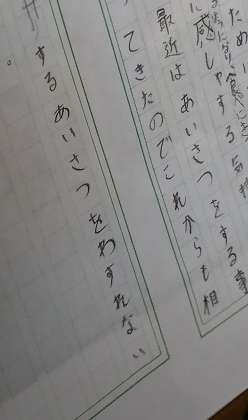 ために食
に感しゃする気持
最近はあいさつをする事
てきたのでこれからも相
するあいさつをわすれない
。